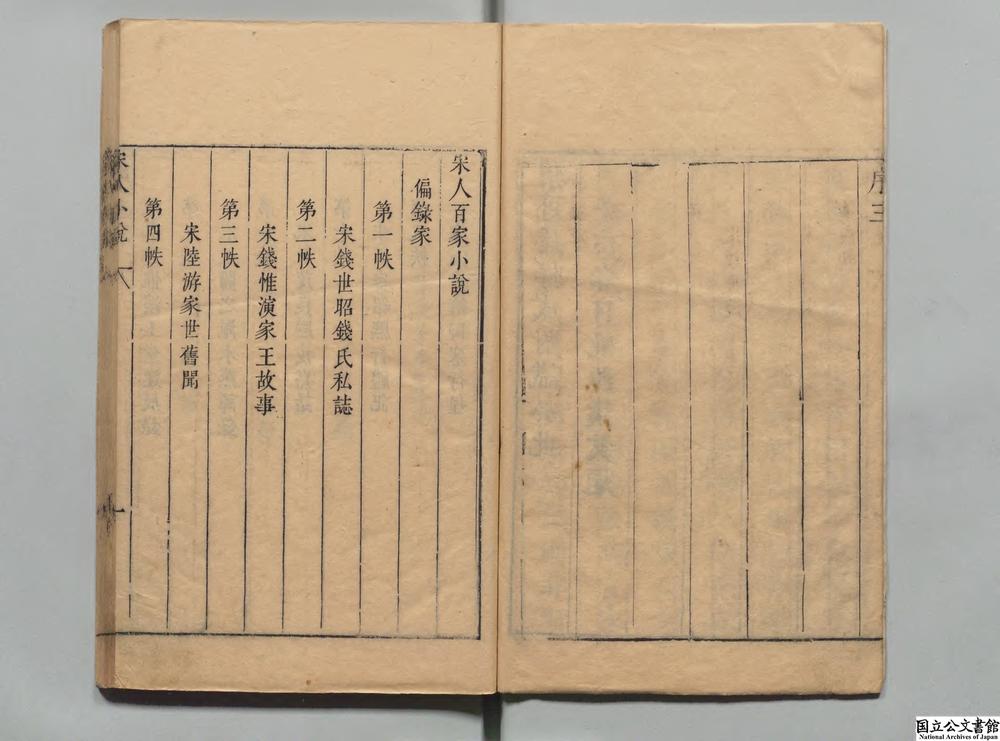 序三
宋人百家小說
偏錄家
第一帙
宋錢世昭錢氏私誌
第二帙
宋錢惟演家王故事
第三帙
宋陸游家世舊聞
第四帙
宋人小說
国立公文書館
National Archives of Japan